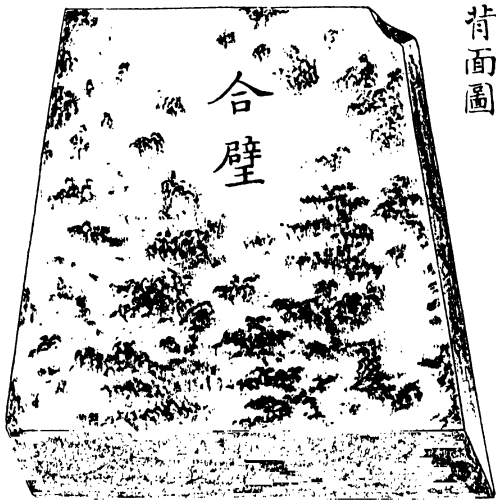 背面圖
合璧